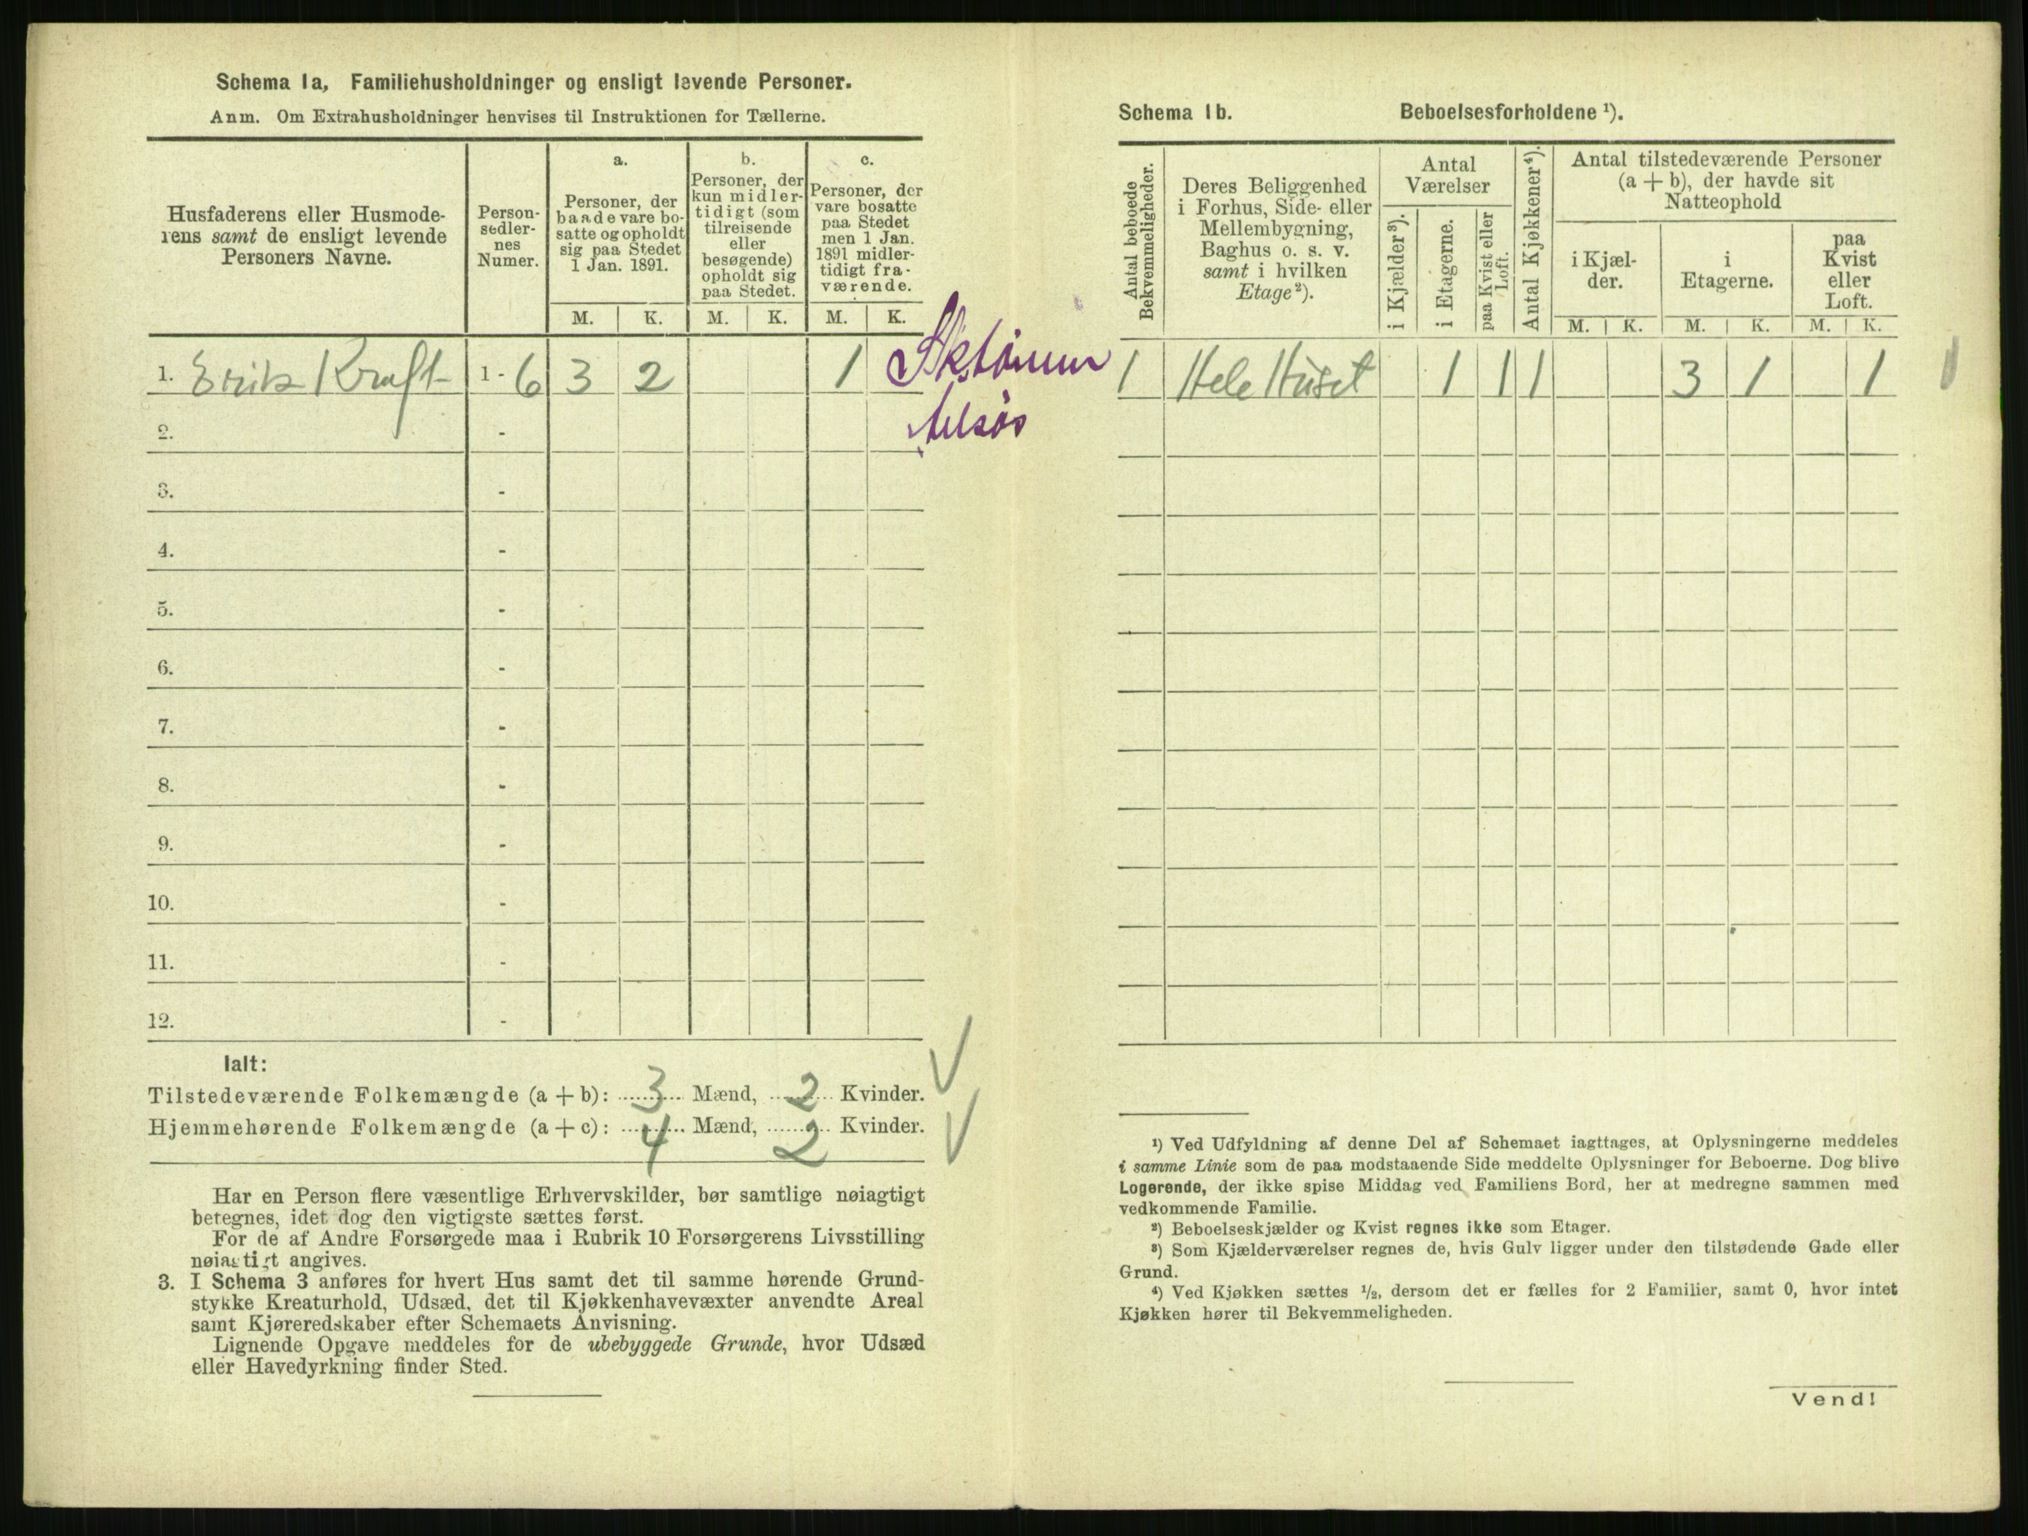 Schema 1a, Familiehusholdninger og ensligt levende Personer.
Anm. Om Extrahusholdninger henvises til Instruktionen for Tællerne.
Husfaderens eller Husmode-
rens samt de ensligt levende
Personers Navne.
Person-
sedler-
nes
Numer.
a.
Personer, der
baade vare bo-
satte og opholdt
sig paa Stedet
1 Jan. 1891.
b.
Personer, der
kun midler-
tidigt (som
tilreisende
eller
besøgende)
opholdt sig
paa Stedet.
c.
Personer, der
vare bosatte
paa Stedet
men 1 Jan.
1891 midler-
tidigt fra-
værende.
M. K. M. K. M. K.
1. Erik Kraft 1 - 6 3 2 1
2. -
3. -
4. -
5. -
6. -
7. -
8. -
9. -
10. -
11. -
12. -
Ialt:
Tilstedeværende Folkemængde (a + b): 3 Mænd, 2 Kvinder.
Hjemmehørende Folkemængde (a + c): 4 Mænd, 2 Kvinder.
Har en Person flere væsentlige Erhvervskilder, bør samtlige nøiagtigt
betegnes, idet dog den vigtigste sættes først.
For de af Andre Forsørgede maa i Rubrik 10 Forsørgerens Livsstilling
nøiagtigt angives.
3. I Schema 3 anføres for hvert Hus samt det til samme hørende Grund-
stykke Kreaturhold, Udsæd, det til Kjøkkenhavevæxter anvendte Areal
samt Kjøreredskaber efter Schemaets Anvisning.
Lignende Opgave meddeles for de ubebyggede Grunde, hvor Udsæd
eller Havedyrkning finder Sted.
Schema 1b. Beboelsesforholdene ¹).
Antal beboede
Bekvemmeligheder.
Deres Beliggenhed
i Forhus, Side- eller
Mellembygning,
Baghus o. s. v.
samt i hvilken
Etage²).
Antal
Værelser
i Kjælder³).
i Etagerne.
paa Kvist eller
Loft.
Antal Kjøkkener⁴).
Antal tilstedeværende Personer
(a + b), der havde sit
Natteophold
i Kjæl-
der.
i
Etagerne.
paa
Kvist
eller
Loft.
M. K. M. K. M. K.
1 Hele Huset 1 1 1 3 1 1
¹) Ved Udfyldning af denne Del af Schemaet iagttages, at Oplysningerne meddeles
i samme Linie som de paa modstaaende Side meddelte Oplysninger for Beboerne. Dog blive
Logerende, der ikke spise Middag ved Familiens Bord, her at medregne sammen med
vedkommende Familie.
²) Beboelseskjælder og Kvist regnes ikke som Etager.
³) Som Kjælderværelser regnes de, hvis Gulv ligger under den tilstødende Gade eller
Grund.
⁴) Ved Kjøkken sættes ½, dersom det er fælles for 2 Familier, samt 0, hvor intet
Kjøkken hører til Bekvemmeligheden.
Vend!